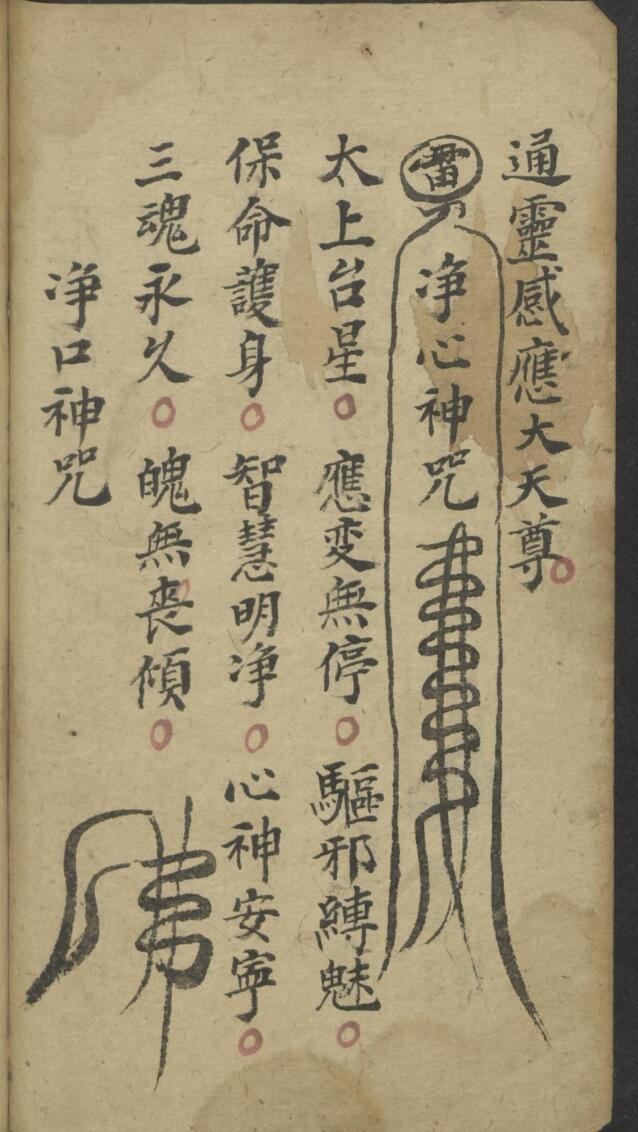 通靈感應大天尊
雷
净心神咒
太上台星 應变無停 驅邪縛魅
保命護身 智慧明净 心神安寧
三魂永久 魄無喪傾
净口神咒